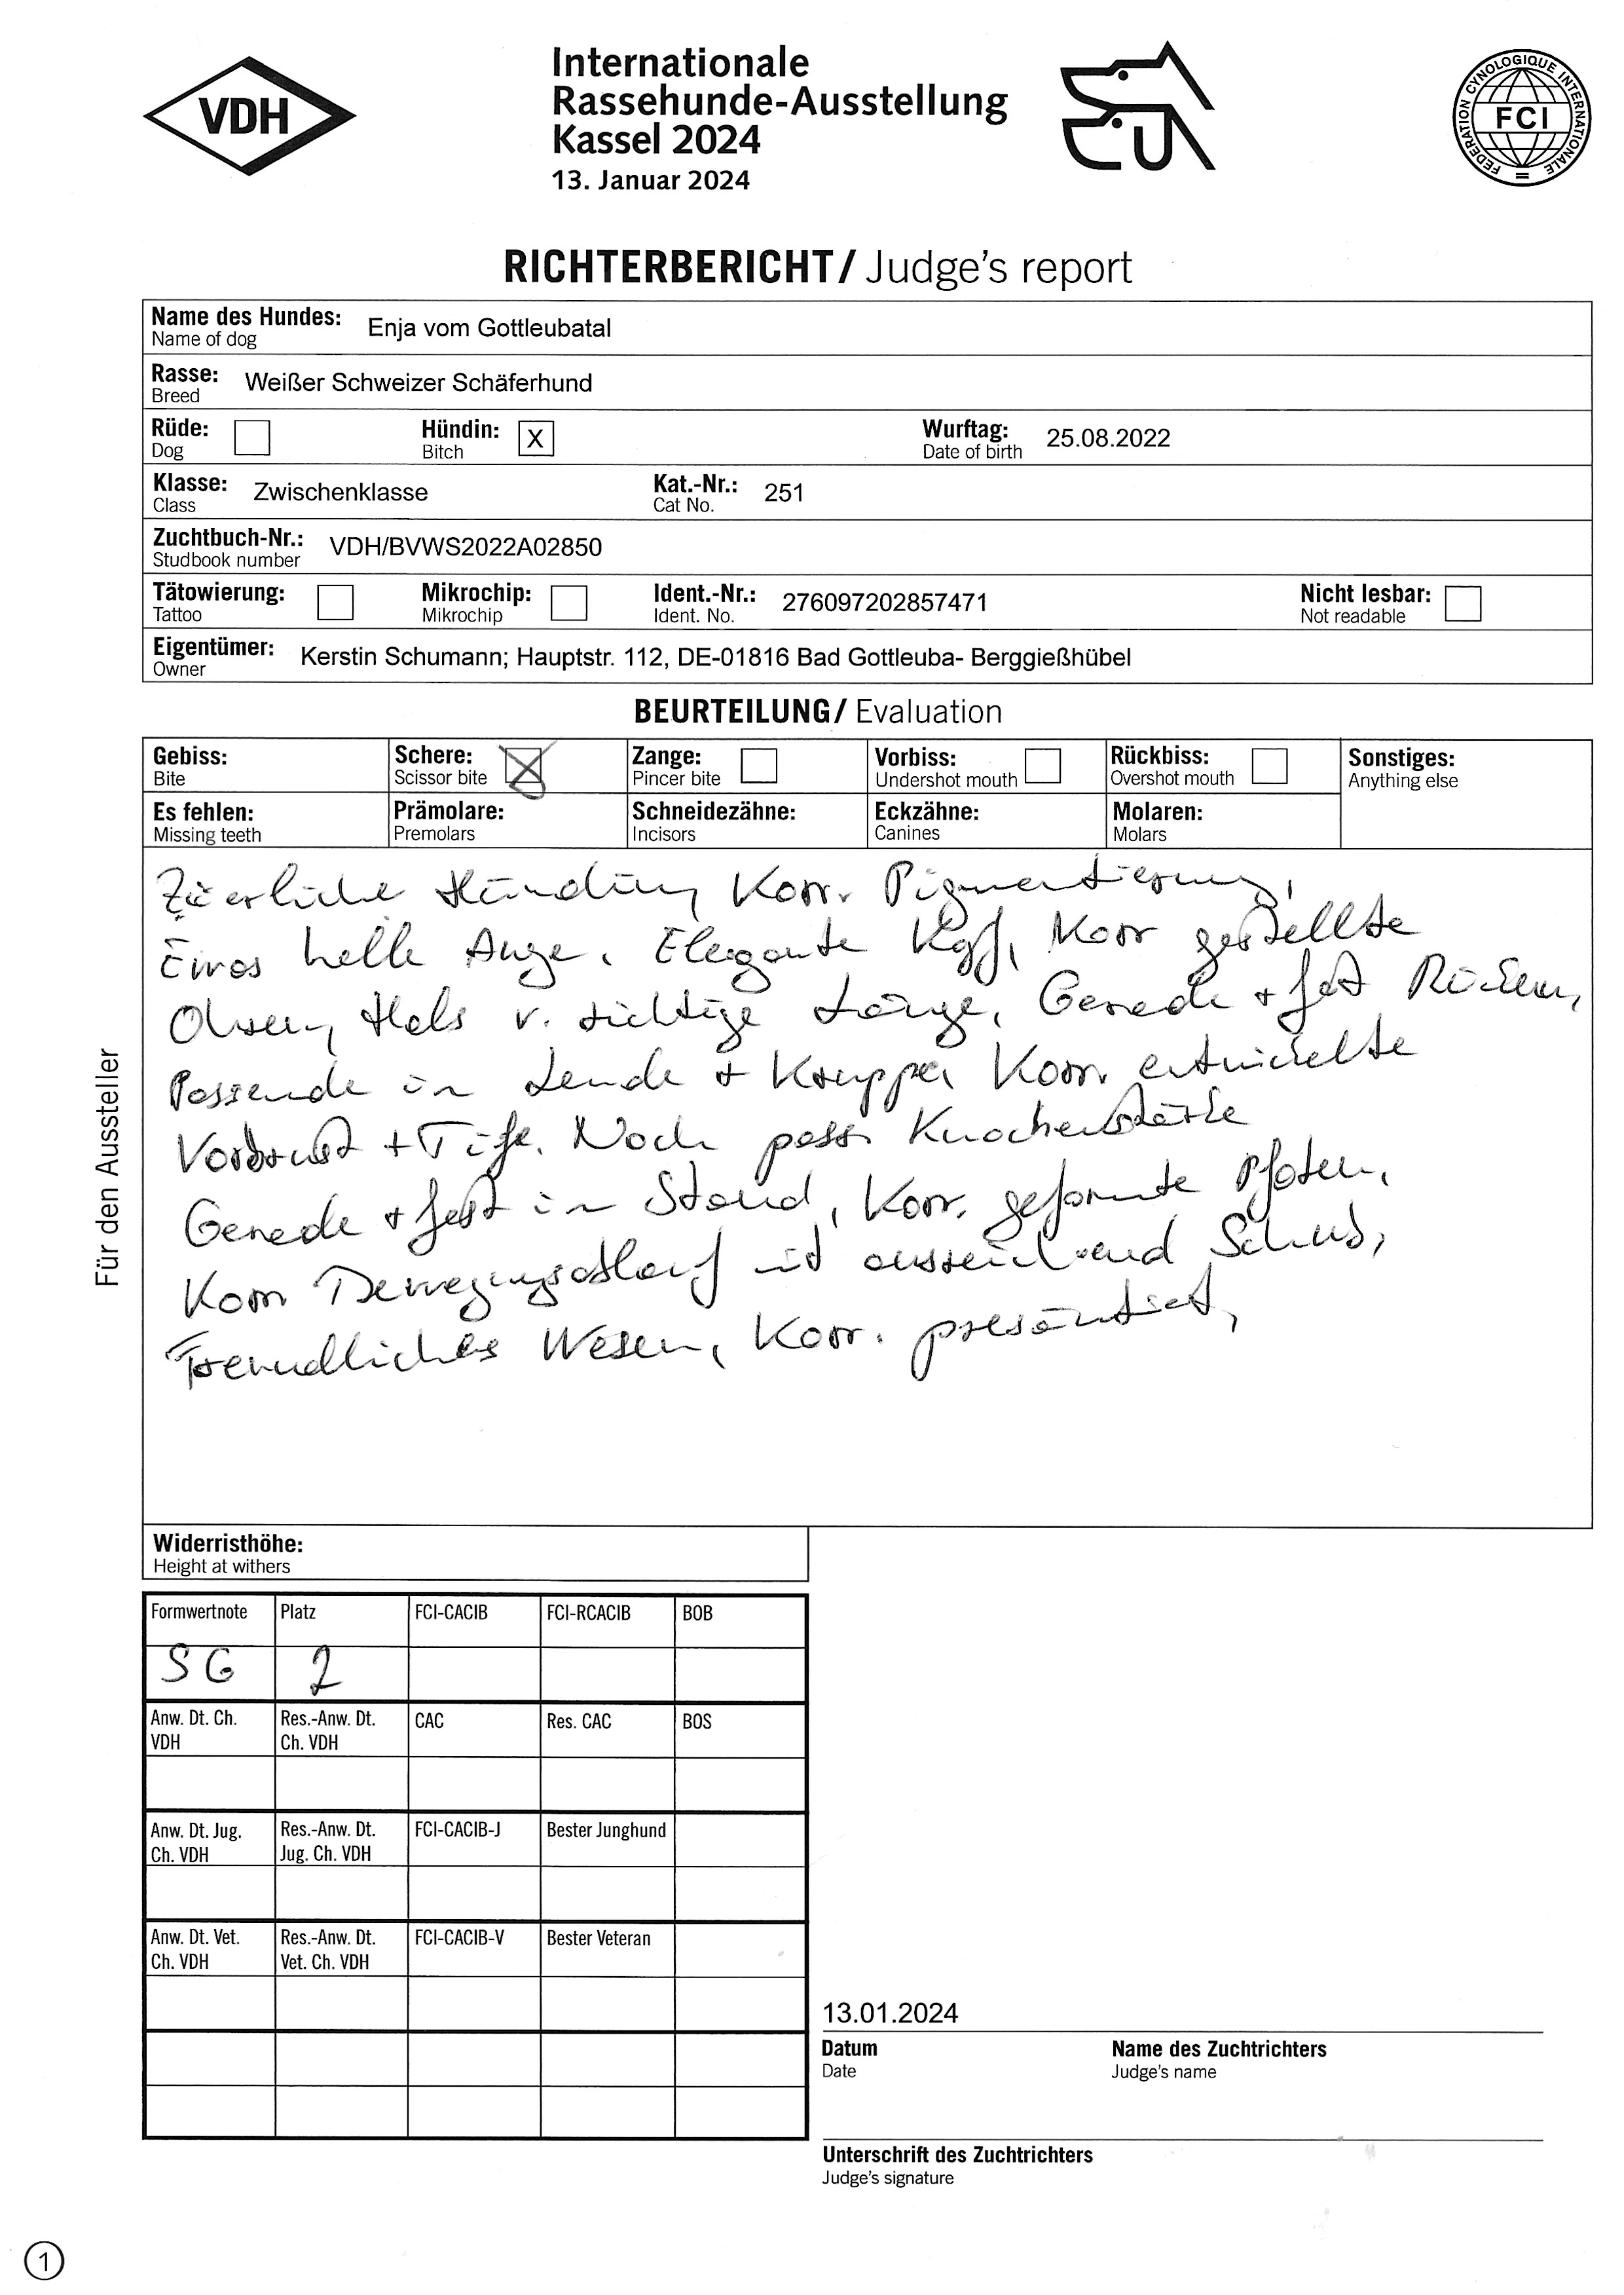 VDH
Internationale
Rassehunde-Ausstellung
Kassel 2024
13. Januar 2024
FEDERATION CYNOLOGIQUE INTERNATIONALE
FCI
RICHTERBERICHT/ Judge's report
Name des Hundes: Enja vom Gottleubatal
Name of dog
Rasse: Weißer Schweizer Schäferhund
Breed
Rüde: Hündin: X Wurftag: 25.08.2022
Dog Bitch Date of birth
Klasse: Zwischenklasse Kat.-Nr.: 251
Class Cat No.
Zuchtbuch-Nr.: VDH/BVWS2022A02850
Studbook number
Tätowierung: Mikrochip: Ident.-Nr.: 276097202857471 Nicht lesbar:
Tattoo Mikrochip Ident. No. Not readable
Eigentümer: Kerstin Schumann; Hauptstr. 112, DE-01816 Bad Gottleuba- Berggießhübel
Owner
BEURTEILUNG/ Evaluation
Gebiss: Schere: X Zange: Vorbiss: Rückbiss: Sonstiges:
Bite Scissor bite Pincer bite Undershot mouth Overshot mouth Anything else
Es fehlen: Prämolare: Schneidezähne: Eckzähne: Molaren:
Missing teeth Premolars Incisors Canines Molars
Hündin, Korr. Pigmentierung,
helle Auge. Elegante Kopf, Korr gestellte
Ohren, Hals v. richtige Länge, Gerade + fest Rücken,
Passende in Lende + Kruppe, Korr. entwickelte
Vorbrust + Tiefe. Noch pass. Knochenstärke
Gerade + fest in Stand, Korr. geformte Pfoten,
Korr Bewegungsablauf mit ausreichend Schub,
Freundliches Wesen, Korr. präsäntiert,
Für den Aussteller
Widerristhöhe:
Height at withers
Formwertnote Platz FCI-CACIB FCI-RCACIB BOB
SG 2
Anw. Dt. Ch. Res.-Anw. Dt. CAC Res. CAC BOS
VDH Ch. VDH
Anw. Dt. Jug. Res.-Anw. Dt. FCI-CACIB-J Bester Junghund
Ch. VDH Jug. Ch. VDH
Anw. Dt. Vet. Res.-Anw. Dt. FCI-CACIB-V Bester Veteran
Ch. VDH Vet. Ch. VDH
13.01.2024
Datum Name des Zuchtrichters
Date Judge's name
Unterschrift des Zuchtrichters
Judge's signature
1